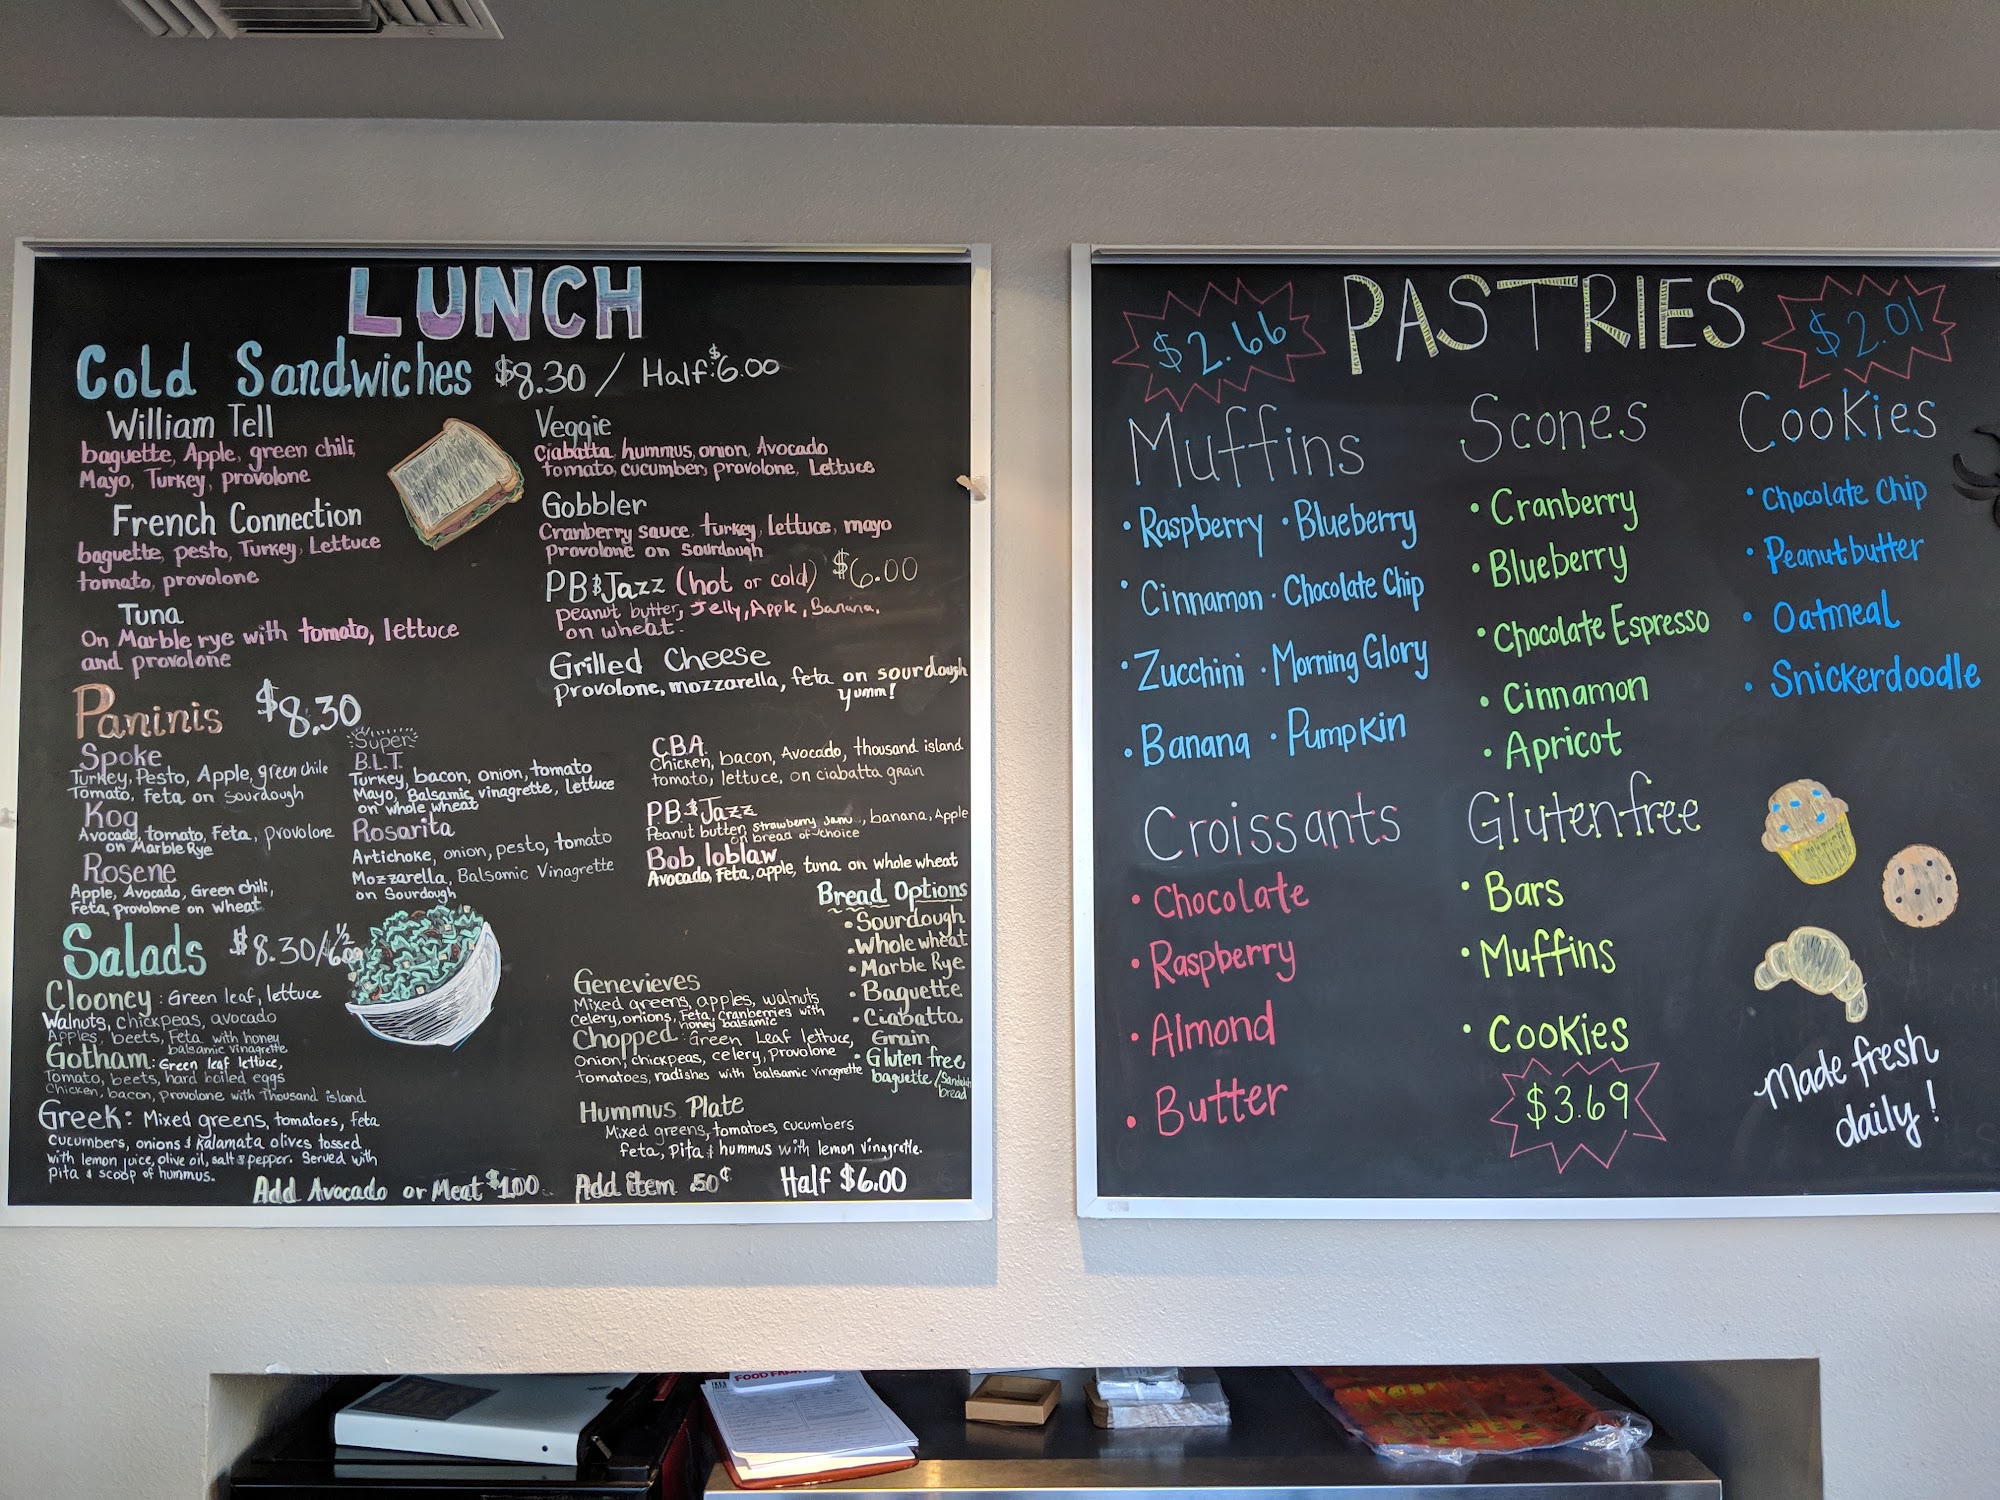 LUNCH
Cold Sandwiches $8.30 / Half: $6.00
William Tell
baguette, Apple, green chili,
Mayo, Turkey, provolone
French Connection
baguette, pesto, Turkey, Lettuce
tomato, provolone
Tuna
On Marble rye with tomato, lettuce
and provolone
Veggie
Ciabatta, hummus, onion, Avocado
tomato, cucumber, provolone, Lettuce
Gobbler
Cranberry sauce, turkey, lettuce, mayo
Provolone on Sourdough
PB&Jazz (hot or cold) $6.00
peanut butter, Jelly, Apple, Banana,
on wheat.
Grilled Cheese
Provolone, mozzarella, feta on sourdough
yumm!
Paninis $8.30
Spoke
Turkey, Pesto, Apple, green chile
Tomato, Feta on Sourdough
Kog
Avocado, tomato, Feta, provolone
on Marble Rye
Rosene
Apple, Avocado, Green chili,
Feta, provolone on wheat
Super
B.L.T.
Turkey, bacon, onion, tomato
Mayo, Balsamic vinagrette, Lettuce
on whole wheat
Rosarita
Artichoke, onion, pesto, tomato
Mozzarella, Balsamic Vinagrette
on Sourdough
CBA
Chicken, bacon, Avocado, thousand island
tomato, lettuce, on ciabatta grain
PB&Jazz
Peanut butter, strawberry jam, banana, Apple
on bread of choice
Bob loblaw
Avocado, Feta, apple, tuna on whole wheat
Bread Options
• Sourdough
• Whole wheat
• Marble Rye
• Baguette
• Ciabatta
Grain
• Gluten free
baguette / Sandwich
bread
Salads $8.30/ 1/2 6.00
Clooney: Green leaf, lettuce
Walnuts, chickpeas, avocado
Apples, beets, Feta with honey
balsamic vinagrette
Gotham: Green leaf lettuce,
Tomato, beets, hard boiled eggs
Chicken, bacon, provolone with Thousand island
Greek: Mixed greens, tomatoes, feta
cucumbers, onions & kalamata olives tossed
with lemon juice, olive oil, salt & pepper. Served with
pita & scoop of hummus.
Genevieves
Mixed greens, apples, walnuts
Celery, onions, Feta, Cranberries with
honey balsamic
Chopped: Green Leaf lettuce,
Onion, chickpeas, celery, provolone
tomatoes, radishes with balsamic vinagrette
Hummus Plate
Mixed greens, tomatoes, cucumbers
feta, pita & hummus with lemon vinagrette.
Add Avocado or Meat $1.00 Add item .50¢ Half $6.00
PASTRIES
$2.66
$2.01
Muffins
• Raspberry • Blueberry
• Cinnamon • Chocolate Chip
• Zucchini • Morning Glory
• Banana • Pumpkin
Scones
• Cranberry
• Blueberry
• Chocolate Espresso
• Cinnamon
• Apricot
Cookies
• Chocolate Chip
• Peanutbutter
• Oatmeal
• Snickerdoodle
Croissants
• Chocolate
• Raspberry
• Almond
• Butter
Glutenfree
• Bars
• Muffins
• Cookies
$3.69
Made fresh
daily!